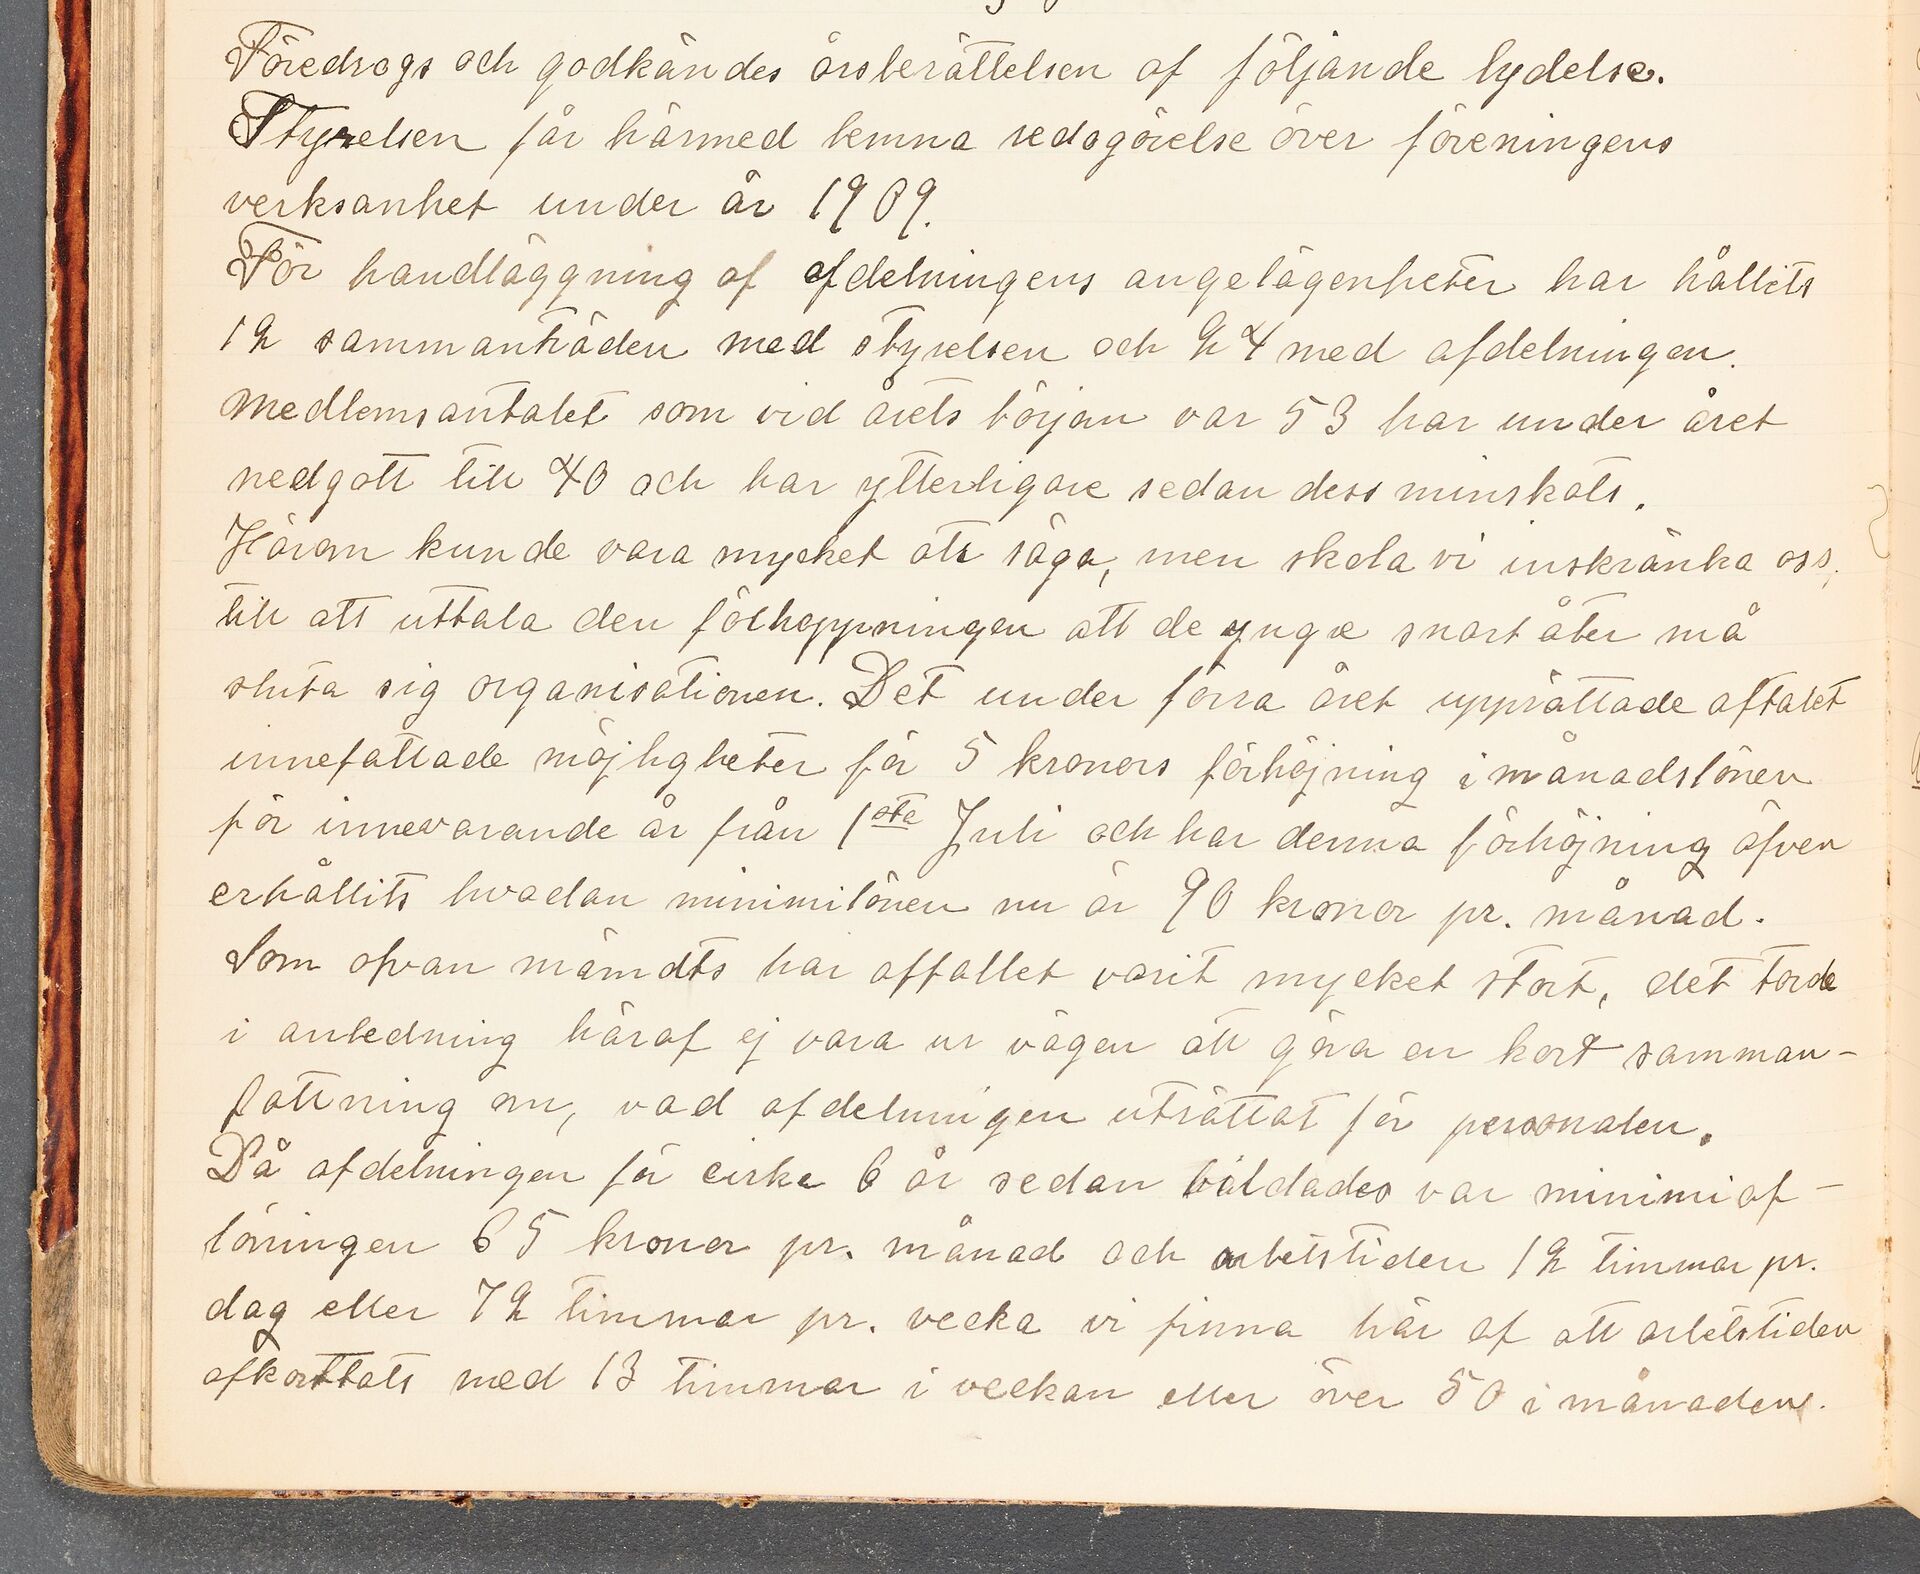 Föredrogs och godkändes årsberättelsen af följande lydelse.
Styrelsen får härmed lemna redogörelse över föreningens
verksamhet under år 1909.
För handläggning af afdelningens angelägenheter har hållits
12 sammanträden med styrelsen och 24 med afdelningen.
Medlemsantalet som vid årets början var 53 har under året
nedgått till 40 och har ytterligare sedan dess minskats.
Härom kunde vara mycket att säga, men skola vi inskränka oss,
till att uttala den förhoppningen att de ynga snart åter må
sluta sig organisationen. Det under förra året upprättade aftalet
innefattade möjligheter för 5 kronors förhöjning i månadslönen
för innevarande år från 1sta Juli och har denna förhöjning äfven
erhållits hvadan minimilönen nu är 90 kronor pr. månad.
Som ofvan nämndts har affallet varit mycket stort, det torde
i anledning häraf ej vara ur vägen att göra en kort samman-
fattning om, vad afdelningen uträttat för personalen.
Då afdelningen för cirka 6 år sedan bildades var minimiaf-
löningen 65 kronor pr. månad och arbetstiden 12 timmar pr.
dag eller 72 timmar pr. vecka vi finna här af att arbetstiden
afkorttats med 13 timmar i veckan eller över 50 i månaden.